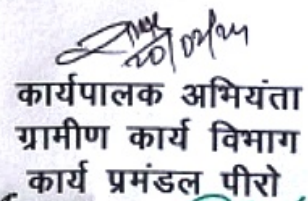 20/02/24
कार्यपालक अभियंता
ग्रामीण कार्य विभाग
कार्य प्रमंडल पीरो